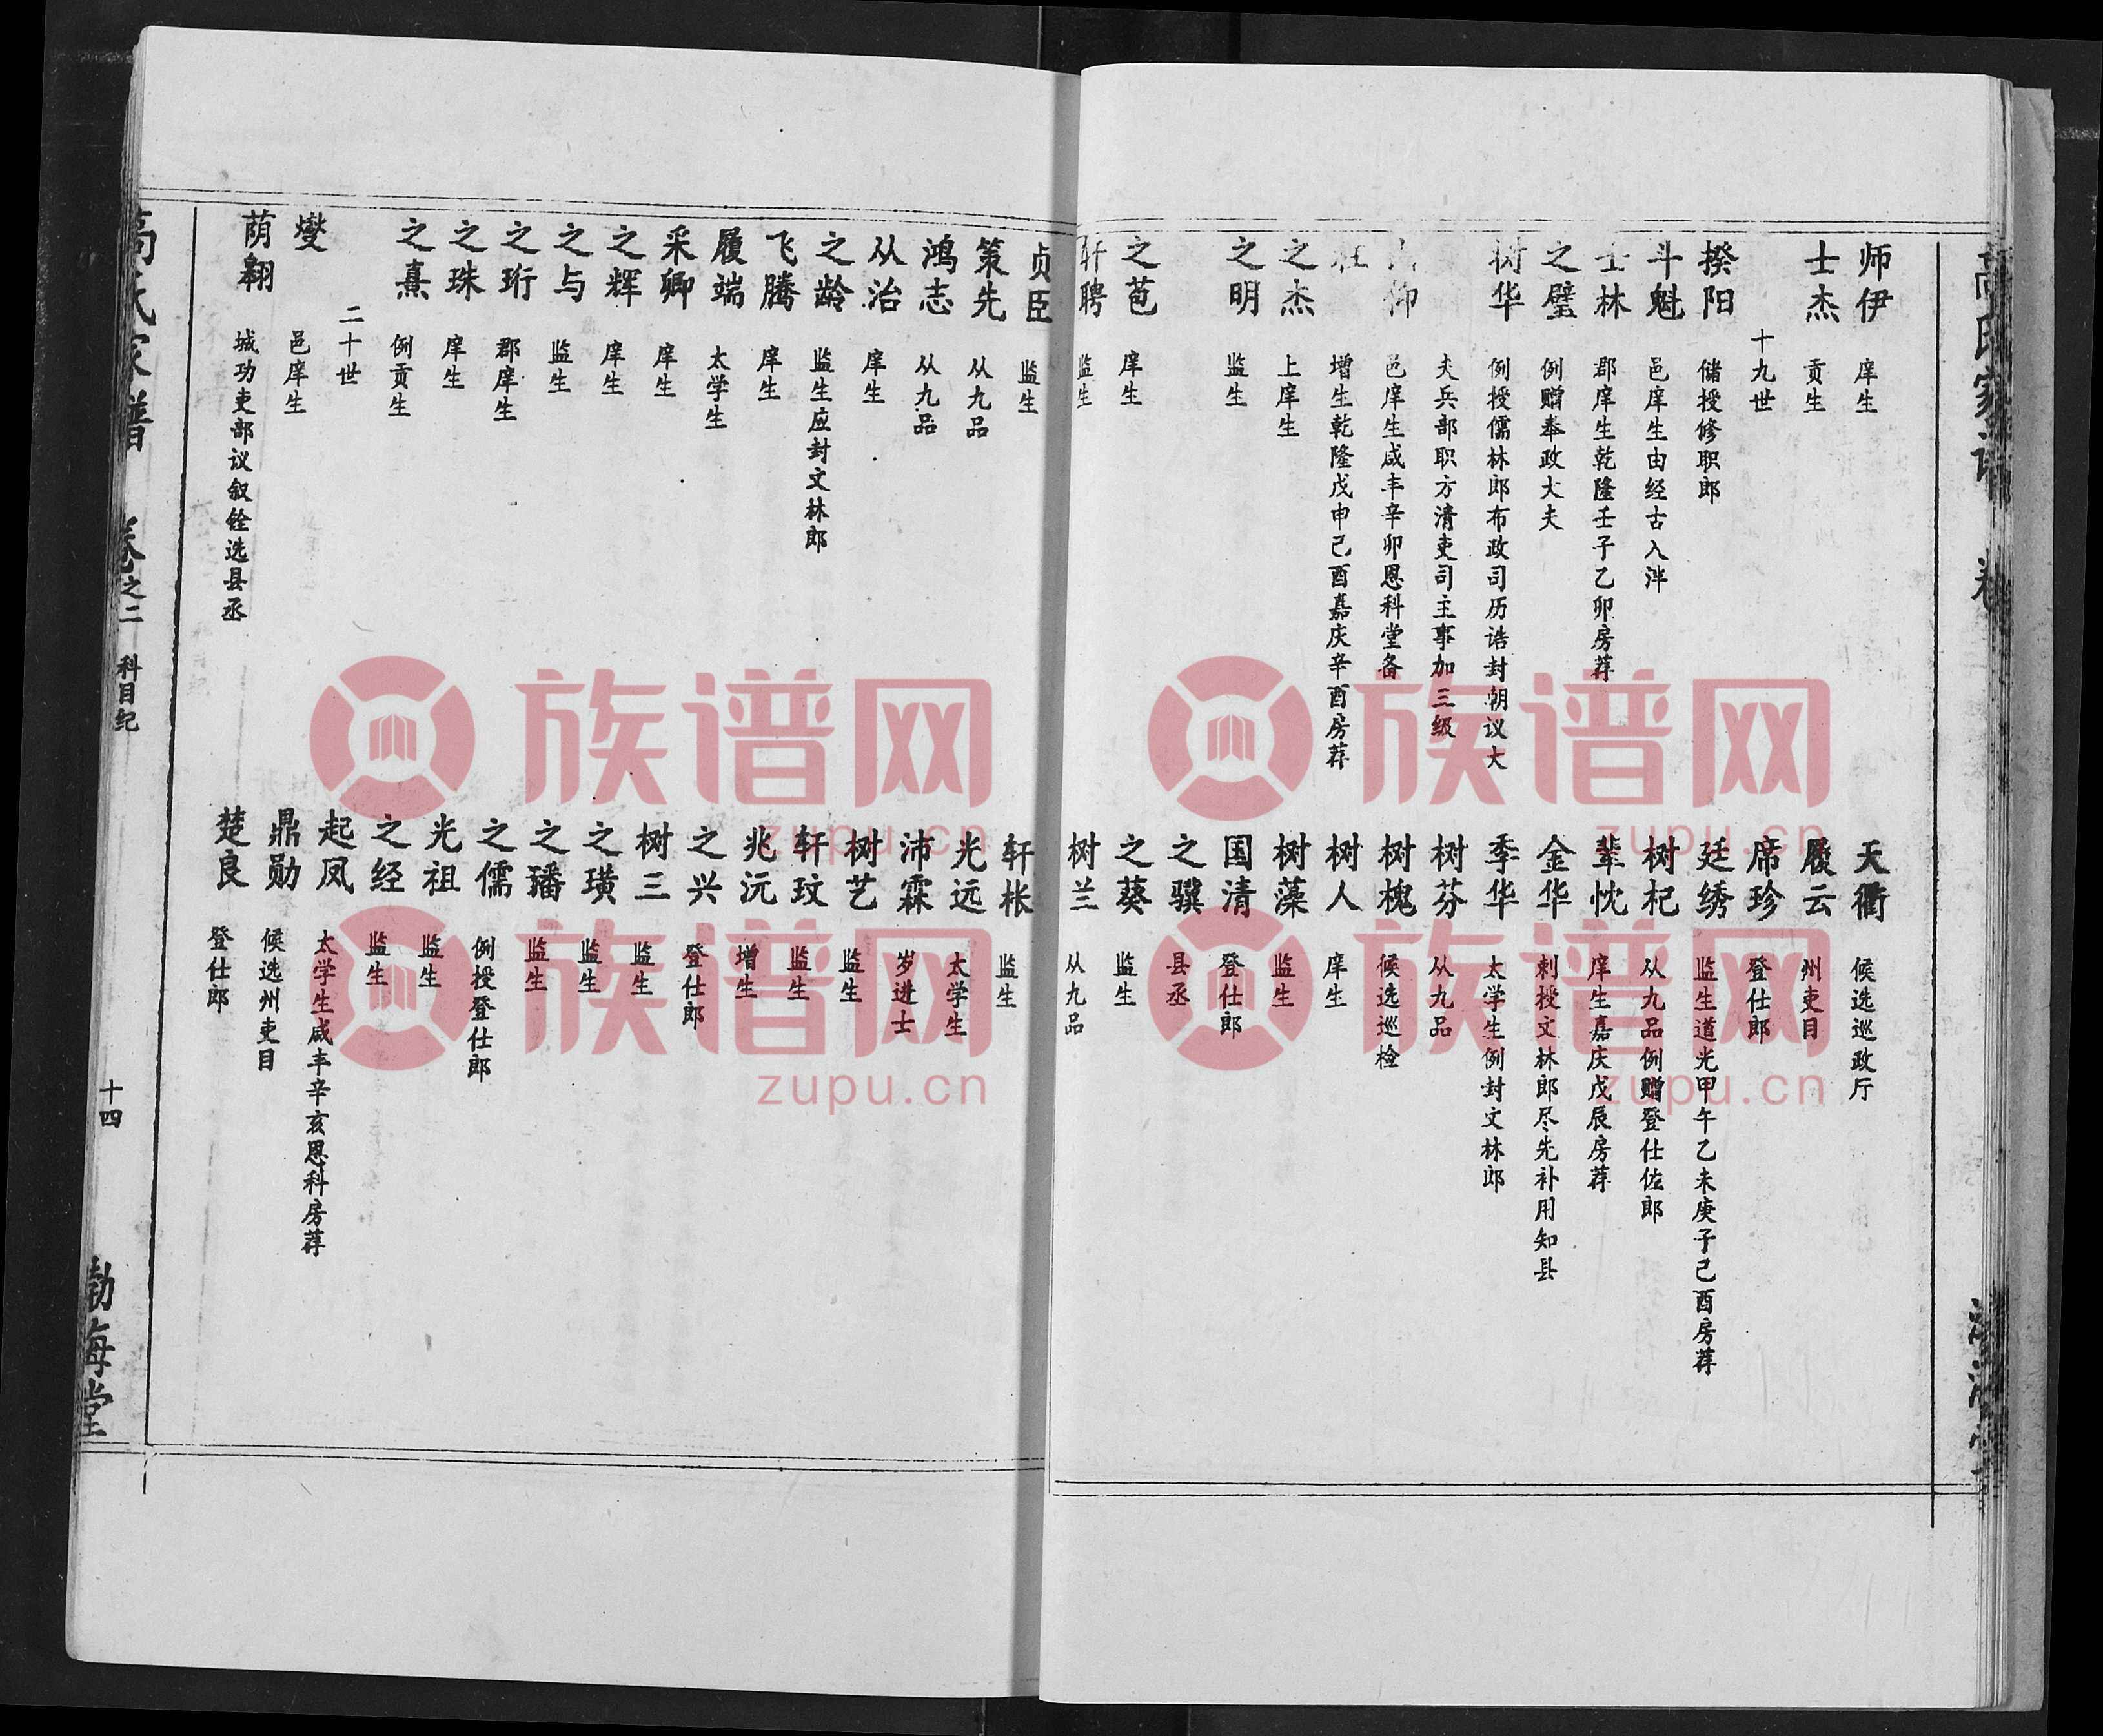 师伊 庠生
士杰 贡生
十九世
揆阳 储授修职郎
斗魁 邑庠生由经古入泮
士林 郡庠生乾隆壬子乙卯房荐
之璧 例赠奉政大夫
树华 例授儒林郎布政司历诰封朝议大
夫兵部职方清吏司主事加三级
仰 邑庠生咸丰辛卯恩科堂备
增生乾隆戊申己酉嘉庆辛酉房荐
之杰 上庠生
之明 监生
之芭 庠生
轩聘 监生
天衢 候选巡政厅
履云 州吏目
席珍 登仕郎
廷绣 监生道光甲午乙未庚子己酉房荐
树杞 从九品例赠登仕佐郎
辈忱 庠生嘉庆戊辰房荐
金华 刺授文林郎尽先补用知县
季华 太学生例封文林郎
树芬 从九品
树槐 候选巡检
树人 庠生
树藻 监生
国清 登仕郎
之骥 县丞
之葵 监生
树兰 从九品
贞臣 监生
策先 从九品
鸿志 从九品
从治 庠生
之龄 监生应封文林郎
飞腾 庠生
履端 太学生
采卿 庠生
之辉 庠生
之与 监生
之珩 郡庠生
之珠 庠生
之熹 例贡生
二十世
燮 邑庠生
荫翱 城功吏部议叙铨选县丞
轩枨 监生
光远 太学生
沛霖 岁进士
树艺 监生
轩玟 监生
兆沅 增生
之兴 登仕郎
树三 监生
之璜 监生
之璠 监生
之儒 例授登仕郎
光祖 监生
之经 监生
起凤 太学生咸丰辛亥恩科房荐
鼎勋 候选州吏目
楚良 登仕郎
高氏家谱 卷之二 科目纪 十四 渤海堂
高氏家谱 卷
族谱网
zupu.cn
族谱网
zupu.cn
族谱网
zupu.cn
族谱网
zupu.cn